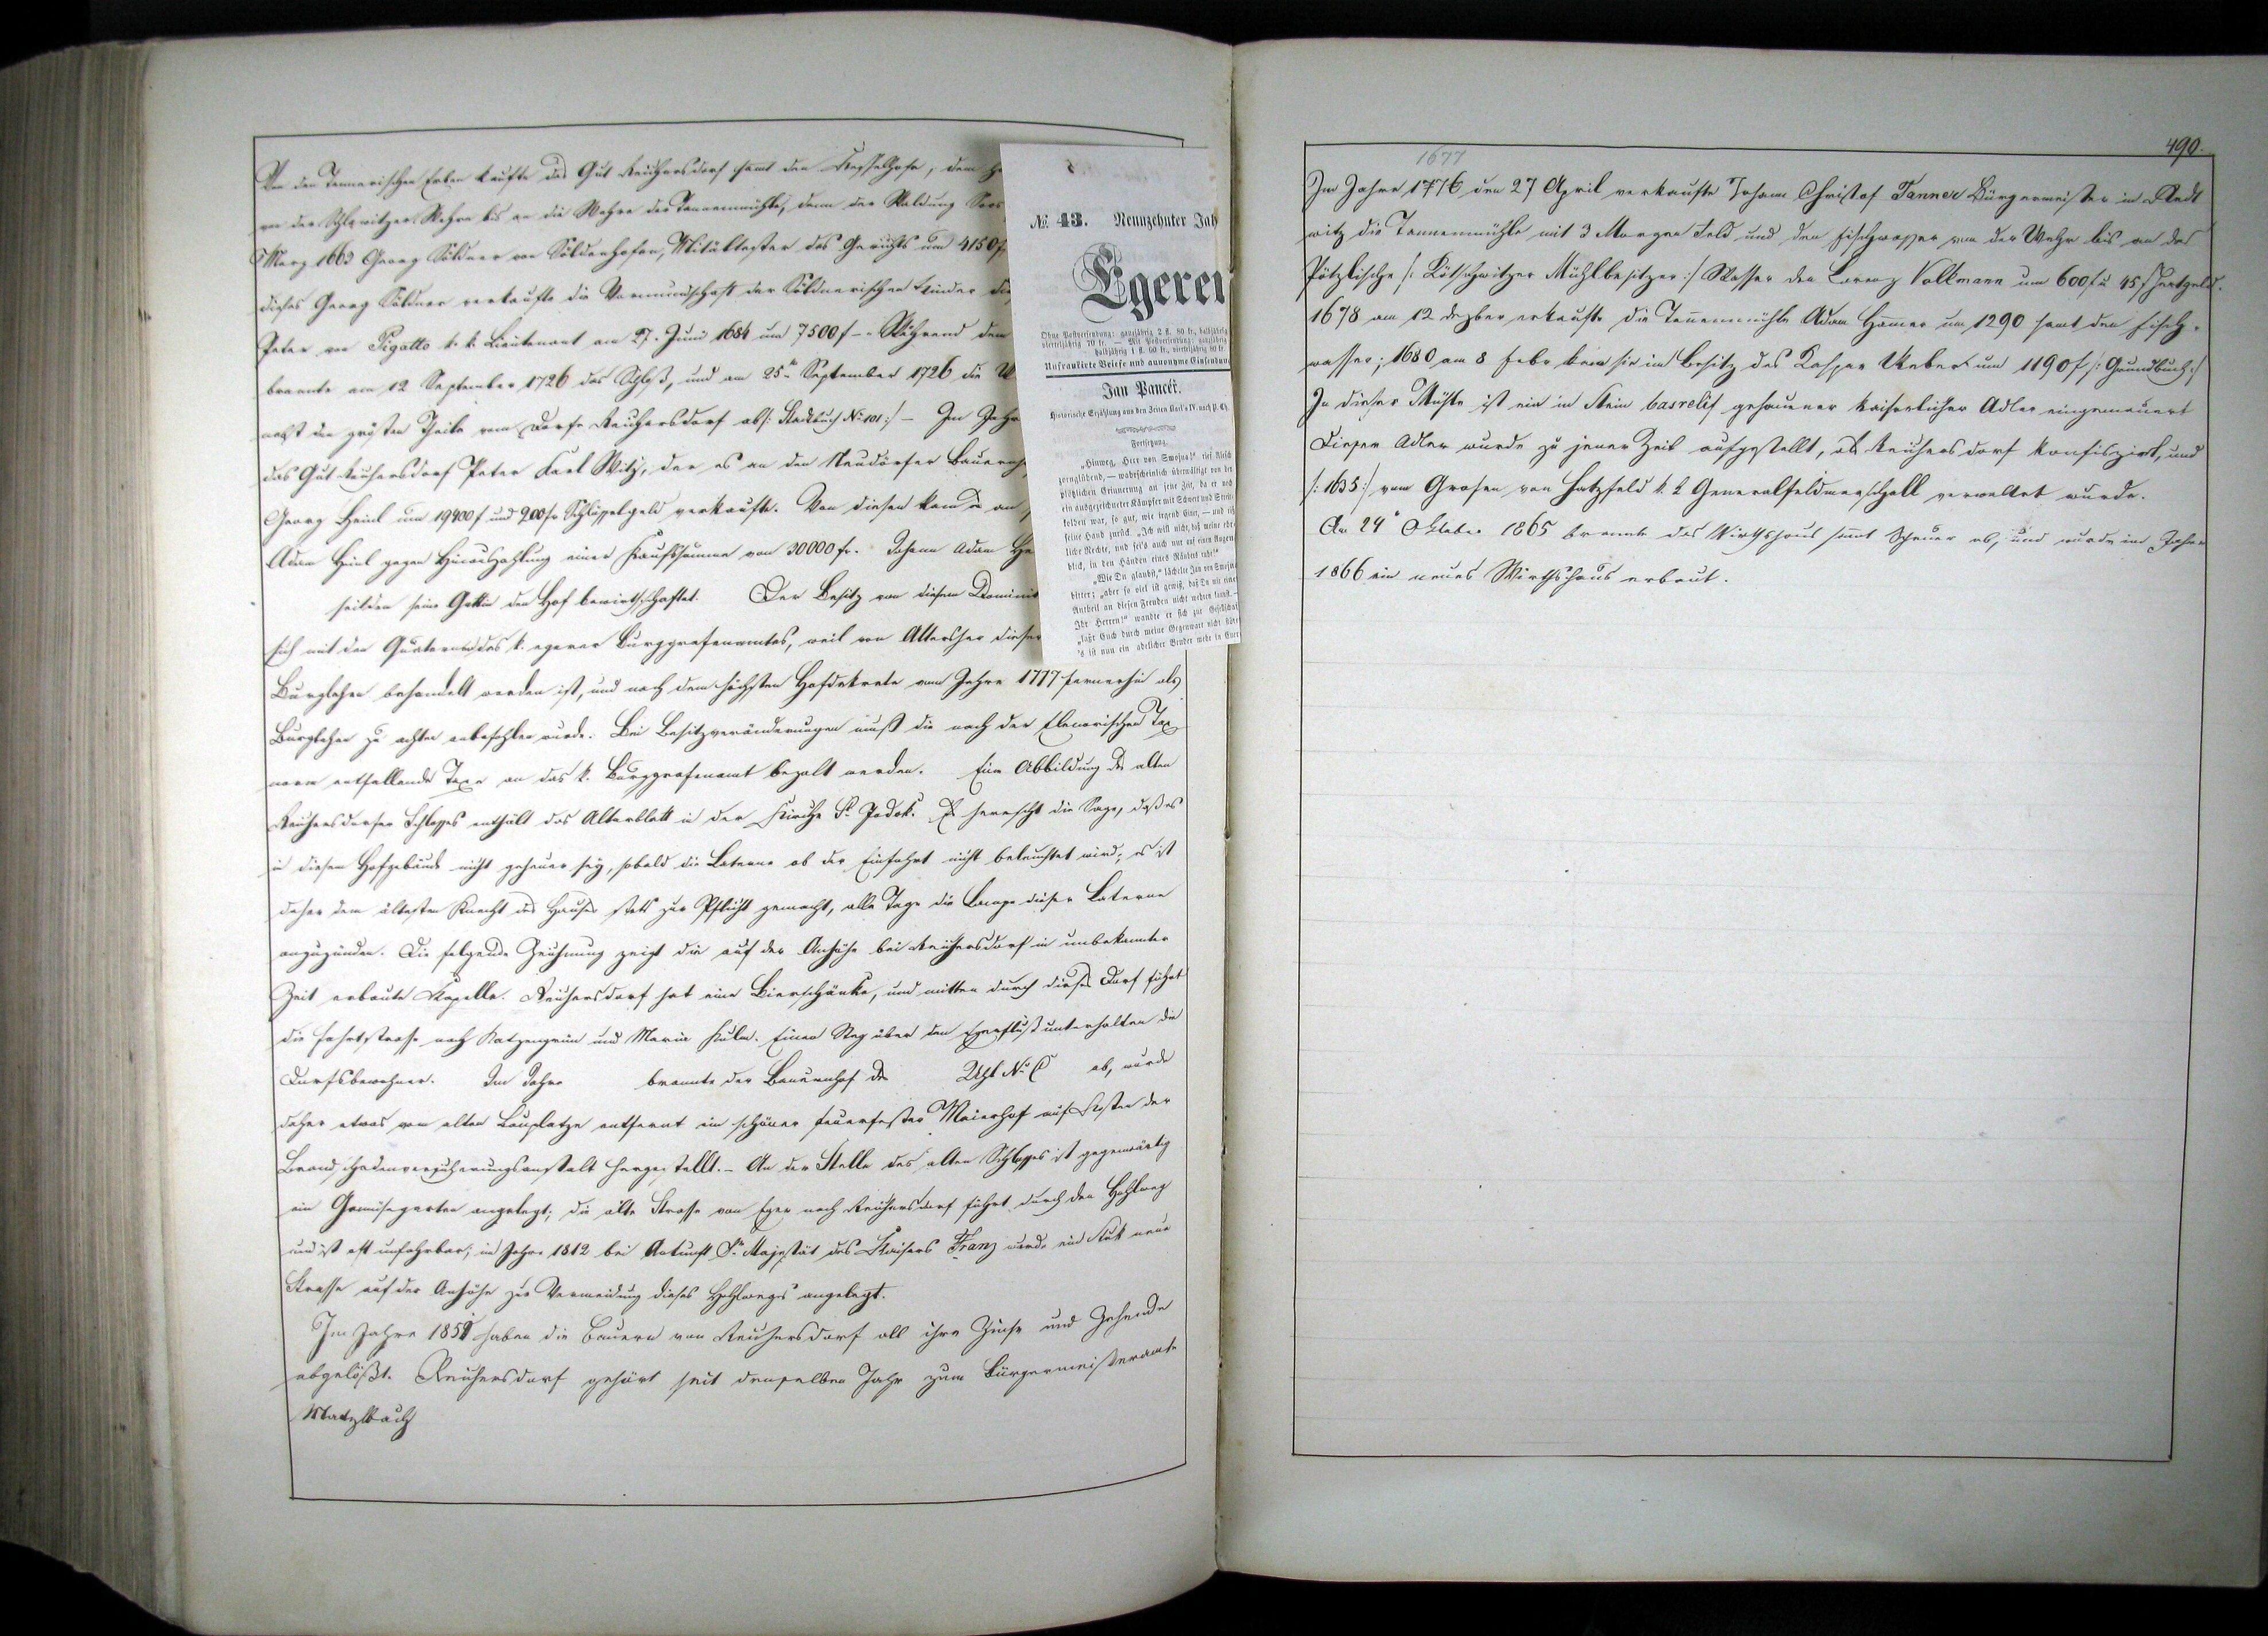 Von den Tannerischen Erben kaufte das Gut Reichersdorf samt den Kesselhofe, dem
von der Schlewitzer Wehre bis an die Wehre der Tannenmühle, dann der Waldung
März 1663 Georg Söldner von Söldenhofen, Mitältester des Gerichts um 4150 f
dieses Georg Söldner verkaufte die Vormundschaft der Söldnerischen Kinder
Peter von Pigatto k. k. Lieutenant am 27. Juni 1684 um 7500 f – Während dem
brannte am 12 September 1726 das Schloß, und am 25ten September 1726 die
nebst den größten Theile vom Dorfe Reichersdorf ab /: Stadtbuch No 101 :/ – Im Jahre
das Gut Reichersdorf Peter Karl Wilz, der es an den Neudörfer Bauern
Georg Heinl um 19400 f und 200 fr Schlüsselgeld verkaufte. Von diesen kam es an
Adam Heinl gegen Hinauszahlung einer Kaufssumme von 30000 fr. Johann Adam
seitdem seine Gattin den Hof bewirthschaftet. Der Besitz von diesem
sich mit den des k. egerer Burggrafenamtes, weil von Altersher dieser
Burglehen behandelt worden ist, und nach dem höchsten Hofdekrete vom Jahre 1777 fernerhin als
Burglehen zu achten anbefohlen wurde. Bei Besitzveränderungen muß die nach der Tax
norm entfallende Taxe an das k. Burggrafenamt bezalt werden. Eine Abbildung des alten
Reichersdorfer Schlosses enthält das Altarblatt in der Kirche St Jodok. Es herrscht die Sage, daß es
in diesem Hofgebäude nicht geheuer sey, sobald die Laterne ob der Einfahrt nicht beleuchtet wird; es ist
daher dem ältesten Knecht des Hauses stets zur Pflicht gemacht, alle Tage die Lampe dieser Laterne
anzuzünden. Die folgende Zeichnung zeigt die auf der Anhöhe bei Reichersdorf in unbekannter
Zeit erbaute Kapelle. Reichersdorf hat eine Bierschänke, und mitten durch dieses Dorf führt
die Fahrtstrasse nach Katzengrün und Maria Kulm. Einen Steg über den Egerfluß unterhalten die
Dorfsbewohner. Im Jahre brannte der Bauernhof des No 6 ab, wurde
daher etwas vom alten Bauplatze entfernt ein schöner feuerfester Maierhof auf Kosten der
Brandschadenversicherungsanstalt hergestellt. – An der Stelle des alten Schlosses ist gegenwärtig
ein Gemüsegarten angelegt; die alte Strasse von Eger nach Reichersdorf führt durch den Hohlweg
und ist oft unfahrbar; im Jahre 1812 bei Ankunft Sr Majestät des Kaisers Franz wurde ein Stük neue
Strasse auf der Anhöhe zur Vermeidung dieses Hohlweges angelegt.
Im Jahre 1851 haben die Bauern von Reichersdorf all ihre Zinse und Zehende
abgelößt. Reichersdorf gehört seit demselben Jahr zum Bürgermeisteramte
Matzlbach
No. 43. Neunzehnter Jah
Egerer
Ohne Postversendung: ganzjährig 2 fl. 80 kr., halbjährig
vierteljährig 70 kr. — Mit Postversendung: ganzjährig
halbjährig 1 fl. 60 kr., vierteljährig 80 kr.
Unfrankirte Briefe und anonyme Einsendun
Jan Pancéř.
Historische Erzählung aus den Zeiten Karl's IV. nach P. Ch.
Fortsetzung.
„Hinweg, Herr von Smojna!" rief
zornglühend, — wahrscheinlich überwältigt von der
plötzlichen Erinnerung an jene Zeit, da er noch
ein ausgezeichneter Kämpfer mit Schwert und Streit=
kolben war, so gut, wie irgend Einer, — und riß
seine Hand zurück. „Ich will nicht, daß meine ehr=
liche Rechte, und sei's auch nur auf einen Augen=
blick, in den Händen eines Räubers ruhe!"
„Wie Du glaubst," lächelte Jan von Smojna
bitter; „aber so viel ist gewiß, daß Du mir einen
Antheil an diesen Freuden nicht wehren kannst.—
Ihr Herren!" wandte er sich zur Gesellschaft
„laßt Euch durch meine Gegenwart nicht stören
's ist nun ein adelicher Bruder mehr in Euer
490.
1677
Im Jahre 1776 den 27 April verkaufte Johann Christof Tanner Bürgermeister in Redt
witz die Tannenmühle mit 3 Morgen Feld und den Fischwasser von der Wehr bis an das
Pötzlische /: Kötschwitzer Mühlbesitzer :/ Wasser den Lorenz Volkmann um 600 f u 45 f
1678 am 12 Dezber erkaufte die Tannenmühle Adam Hamer um 1290 samt den Fisch=
wasser; 1680 am 8 Febr kam sie im Besitz des Kaspar Weber um 1190 f /: Grundbuch :/
In dieser Mühle ist ein in Stein basrelif gehauener kaiserlicher Adler eingemauert
Diesen Adler wurde zu jener Zeit aufgestellt, als Reichersdorf konfiszirt, und
/: 1635 :/ vom Grafen von Hatzfeld k. k Generalfeldmarschall verwaltet wurde.
Am 24 Oktober 1865 brannte das Wirthshaus samt Scheuer ab, und wurde im Jahre
1866 ein neues Wirthshaus erbaut.